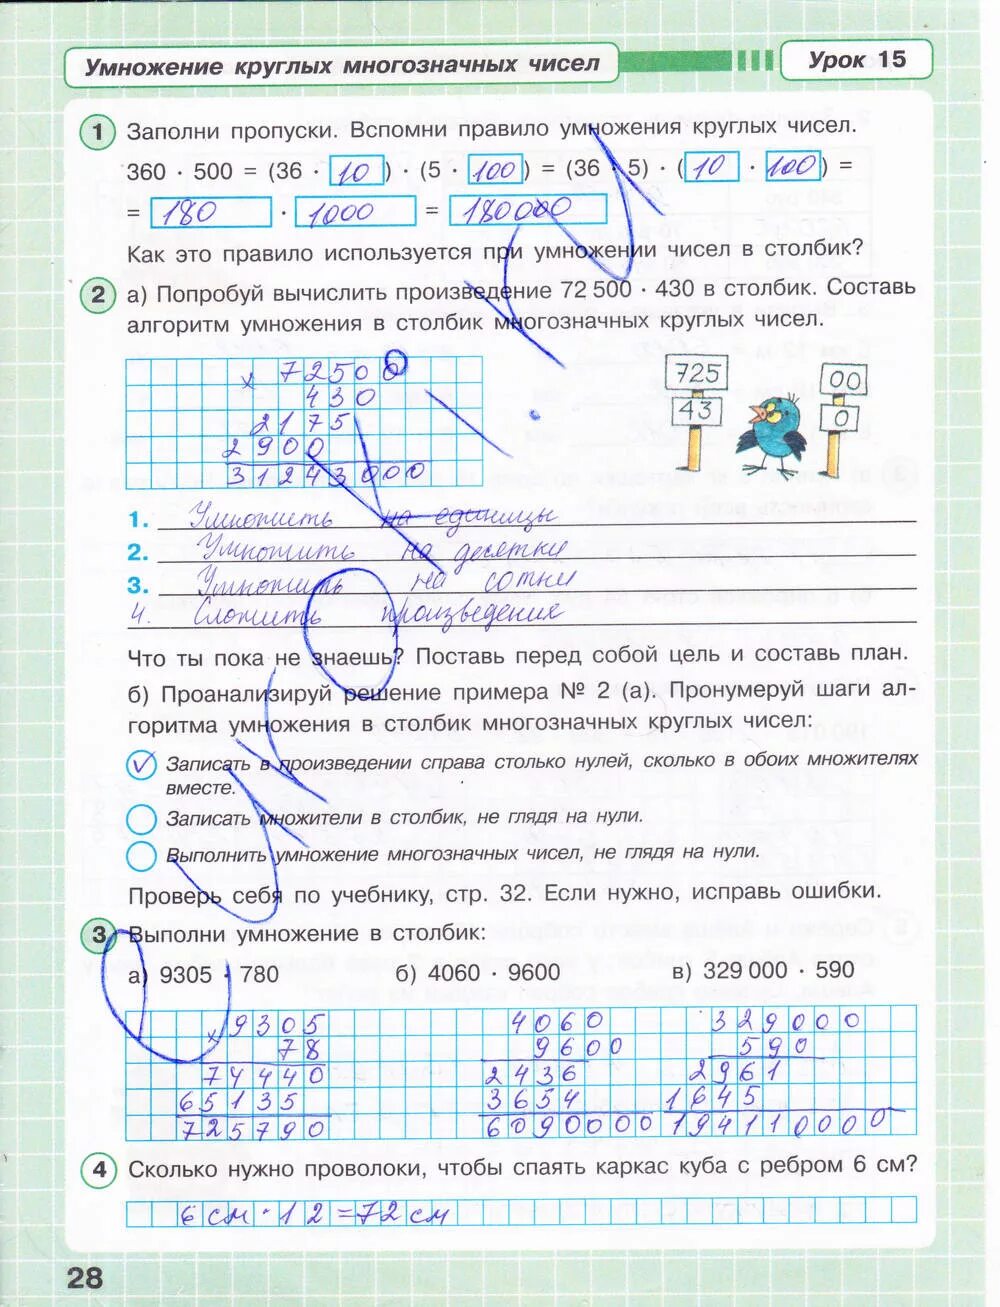 Умножение круглых многозначных чисел
Урок 15
1 Заполни пропуски. Вспомни правило умножения круглых чисел.
360 · 500 = (36 · 10) · (5 · 100) = (36 · 5) · (10 · 100) =
= 180 · 1000 = 180000
Как это правило используется при умножении чисел в столбик?
2 а) Попробуй вычислить произведение 72 500 · 430 в столбик. Составь
алгоритм умножения в столбик многозначных круглых чисел.
× 72500
430
2175
2900
31243000
725
43
00
0
1. Умножить на единицы
2. Умножить на десятки
3. Умножить на сотни
4. Сложить произведения
Что ты пока не знаешь? Поставь перед собой цель и составь план.
б) Проанализируй решение примера № 2 (а). Пронумеруй шаги ал-
горитма умножения в столбик многозначных круглых чисел:
V Записать в произведении справа столько нулей, сколько в обоих множителях
вместе.
Записать множители в столбик, не глядя на нули.
Выполнить умножение многозначных чисел, не глядя на нули.
Проверь себя по учебнику, стр. 32. Если нужно, исправь ошибки.
3 Выполни умножение в столбик:
а) 9305 · 780 б) 4060 · 9600 в) 329 000 · 590
× 9305 4060 329000
78 9600 590
74440 2436 2961
65135 3654 1645
725790 6090000 194110000
4 Сколько нужно проволоки, чтобы спаять каркас куба с ребром 6 см?
6 см · 12 = 72 см
28